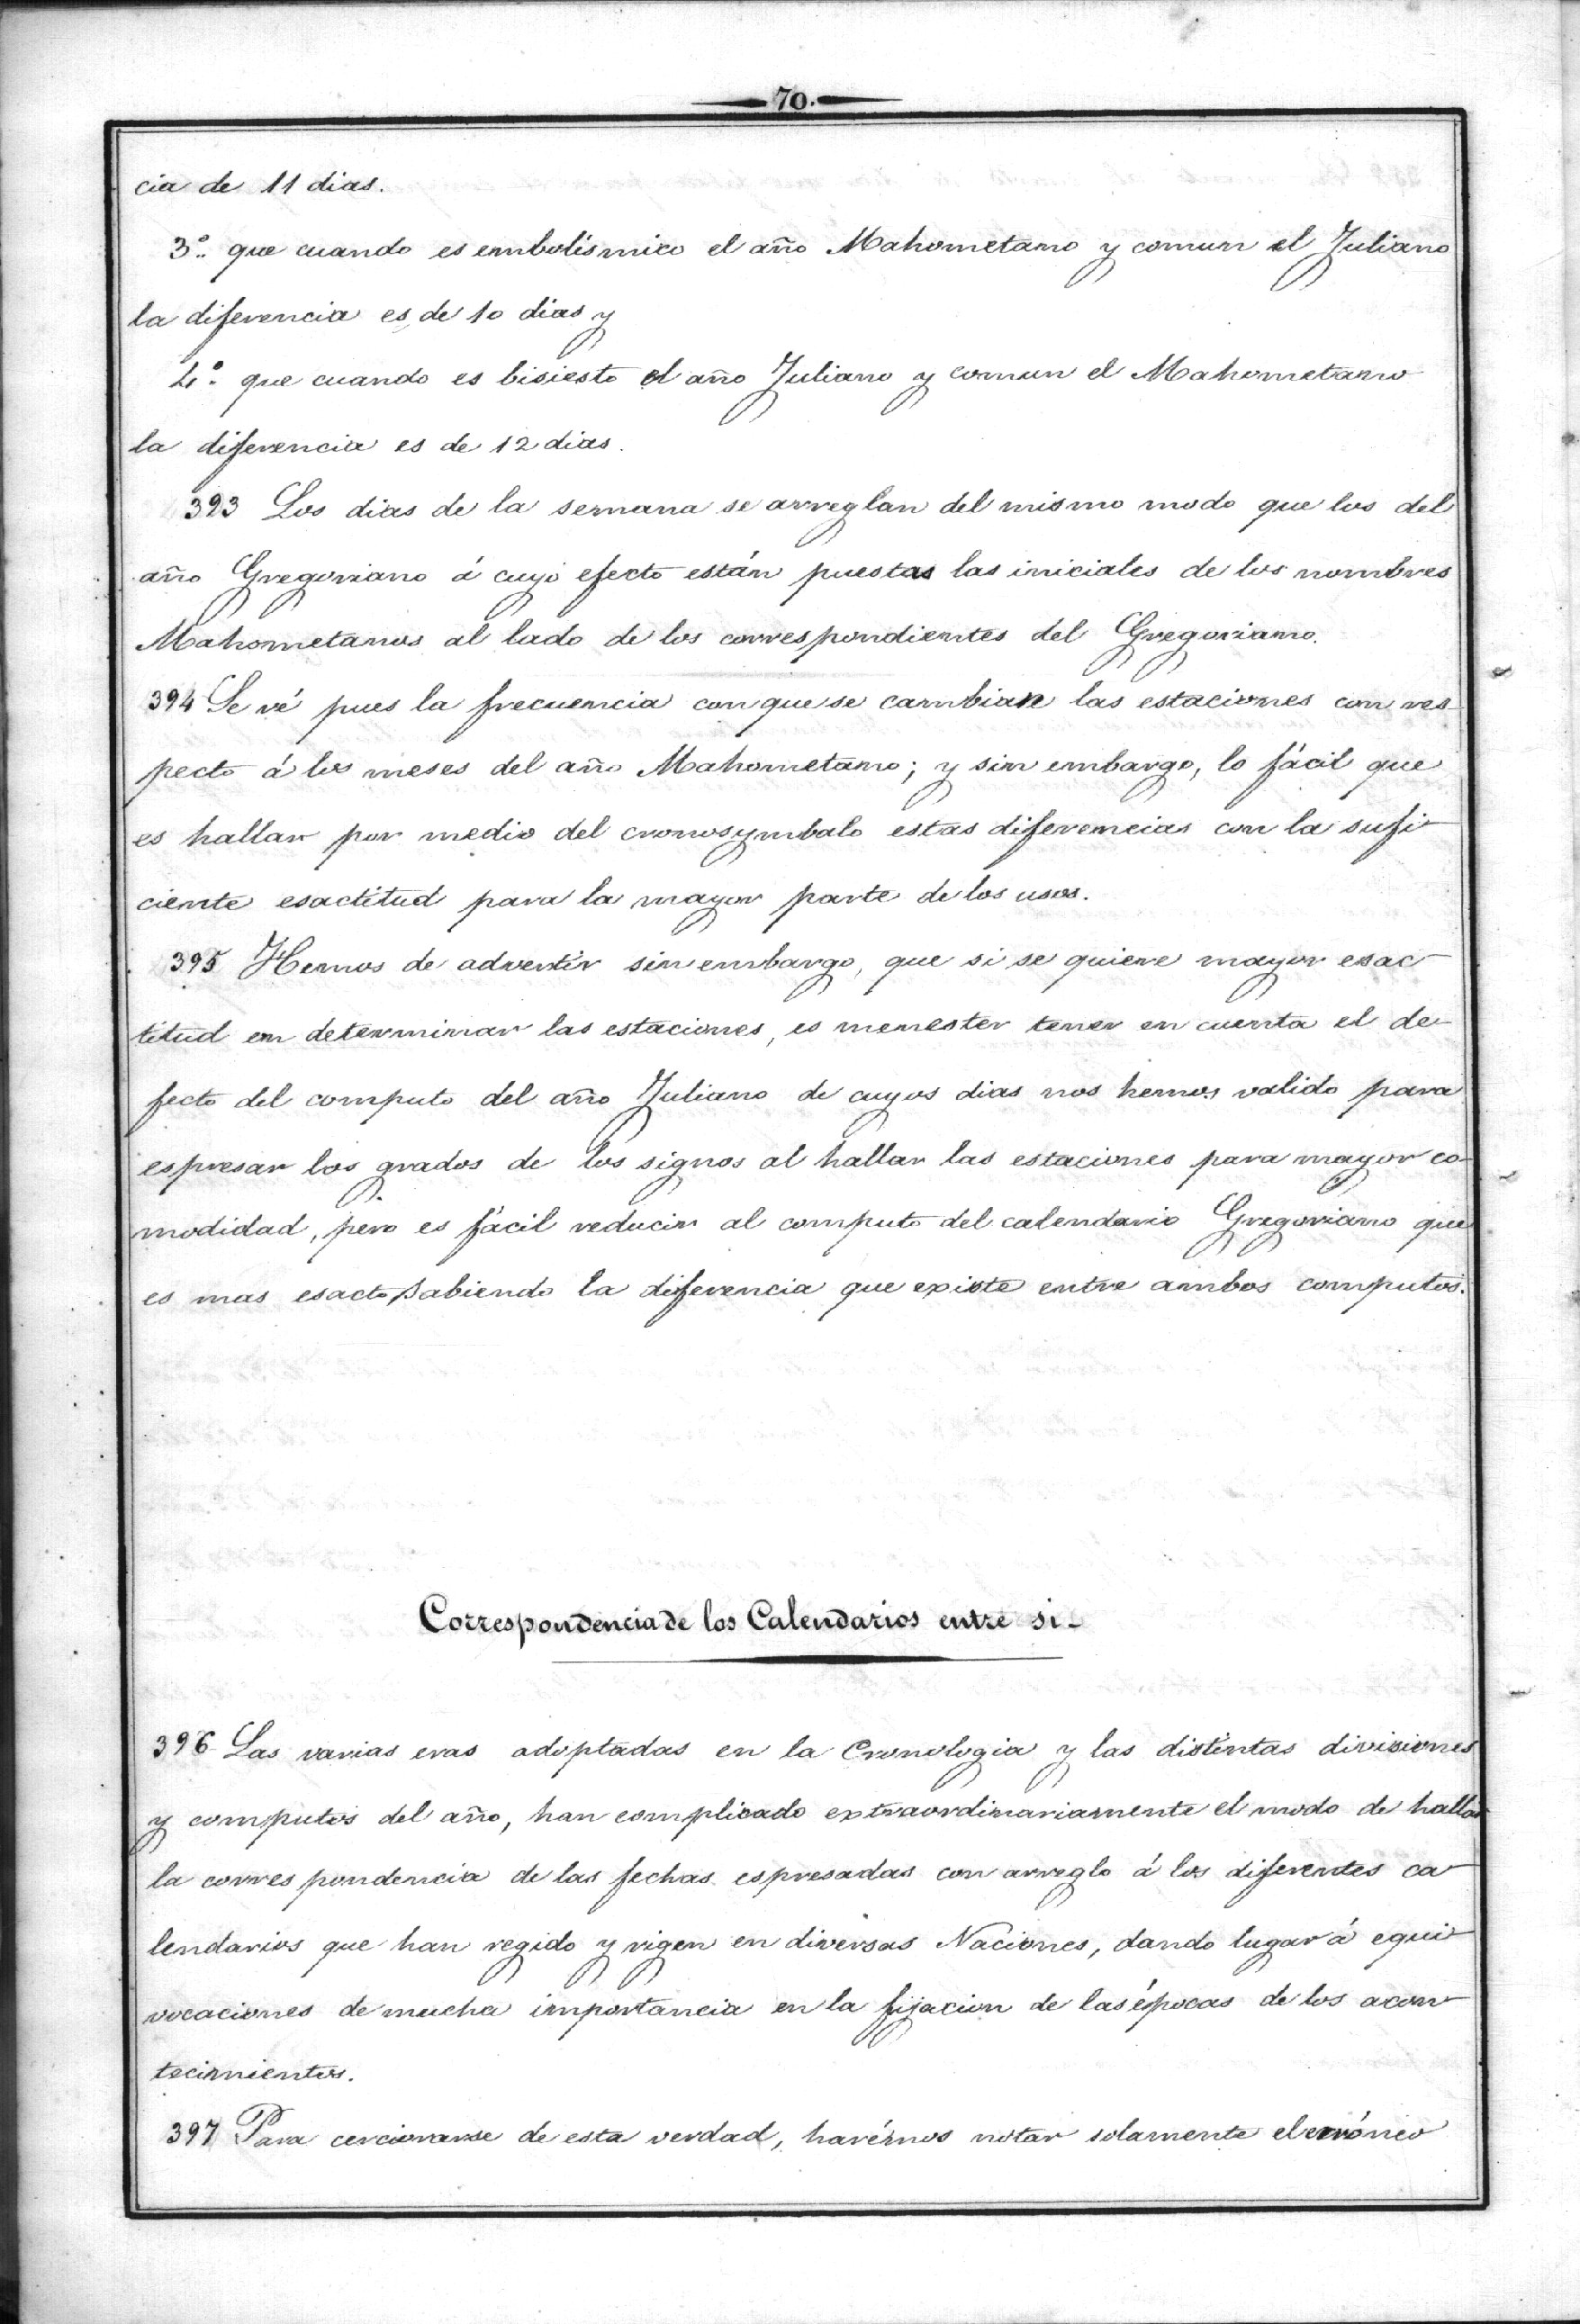 70.
cia de 11 dias.
3.º que cuando es embolísmico el año Mahometano y comun el Juliano
la diferencia es de 10 dias y
4.º que cuando es bisiesto el año Juliano y comun el Mahometano
la diferencia es de 12 dias.
393 Los dias de la semana se arreglan del mismo modo que los del
año Gregoriano á cuyo efecto están puestas las iniciales de los nombres
Mahometanos al lado de los correspondientes del Gregoriano.
394 Se vé pues la frecuencia con que se cambian las estaciones con res-
pecto á los meses del año Mahometano; y sin embargo, lo fácil que
es hallar por medio del cronosymbalo estas diferencias con la sufi-
ciente esactitud para la mayor parte de los usos.
395 Hemos de advertir sin embargo, que si se quiere mayor esac-
titud en determinar las estaciones, es menester tener en cuenta el de-
fecto del computo del año Juliano de cuyos dias nos hemos valido para
espresar los grados de los signos al hallar las estaciones para mayor co-
modidad, pero es fácil reducir al computo del calendario Gregoriano que
es mas esacto sabiendo la diferencia que existe entre ambos computos.
Correspondencia de los Calendarios entre si-
396 Las varias eras adoptadas en la Cronologia y las distintas divisiones
y computos del año, han complicado extraordinariamente el modo de hallar
la correspondencia de las fechas espresadas con arreglo á los diferentes ca-
lendarios que han regido y rigen en diversas Naciones, dando lugar á equi-
vocaciones de mucha importancia en la fijacion de las épocas de los acon-
tecimientos.
397 Para cerciorarse de esta verdad, harémos notar solamente el erróneo